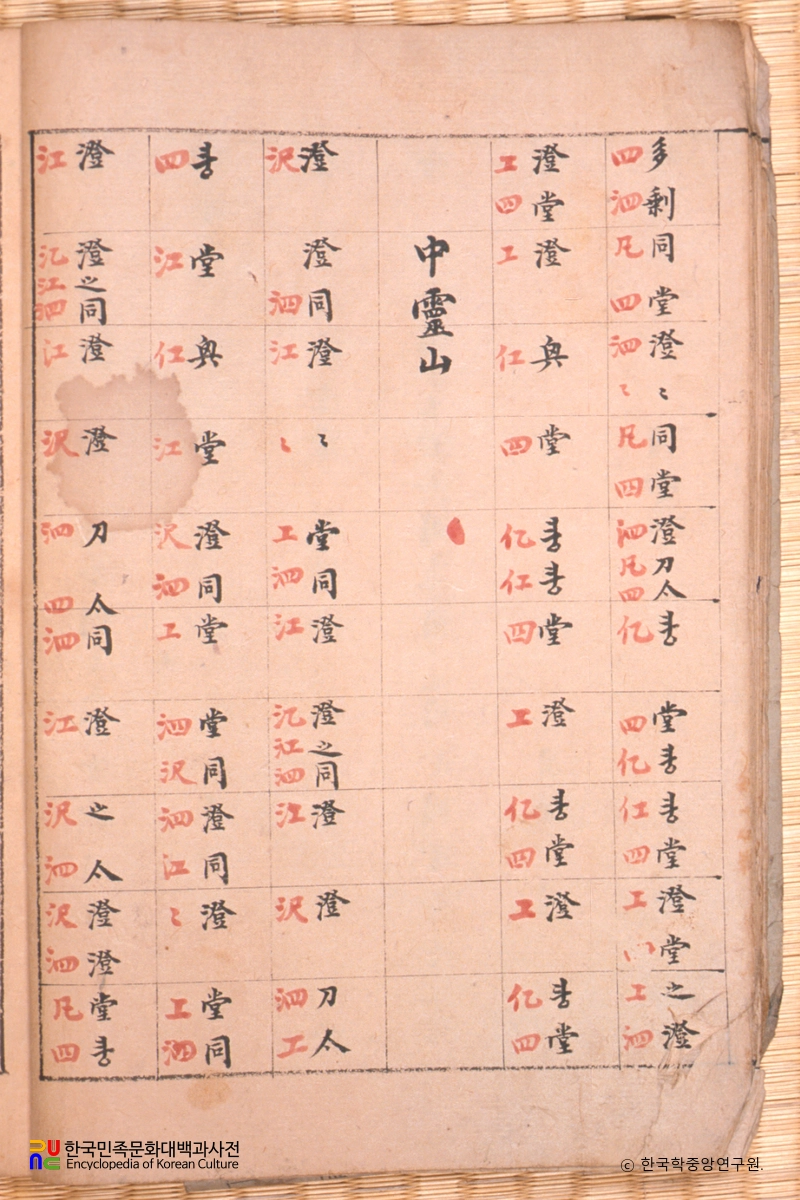 多剩同堂澄〻同堂澄刀太堂堂澄堂之澄
四泗凡四泗〻凡四泗凡四亿四亿仁四工工泗
澄堂澄堂堂澄堂澄堂
工四工仁四亿仁四工亿四工亿四
中靈山
澄澄同澄〻堂同澄澄之同澄澄刀太
沢泗江〻工泗江江泗江沢泗工
堂堂澄同堂堂同澄同澄堂同
四江仁江沢泗工泗沢泗江〻工泗
澄澄之同澄澄刀太同澄之太澄澄堂
江江泗江沢泗四泗江沢泗沢泗凡四
한국민족문화대백과사전
Encyclopedia of Korean Culture
© 한국학중앙연구원.